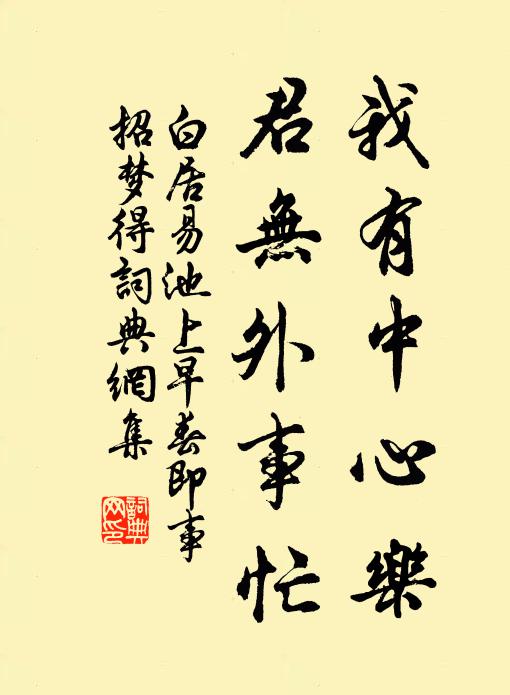 我有中心樂
君無外事忙
白居易池上早春即事
招梦得詞典網集
詞典网印